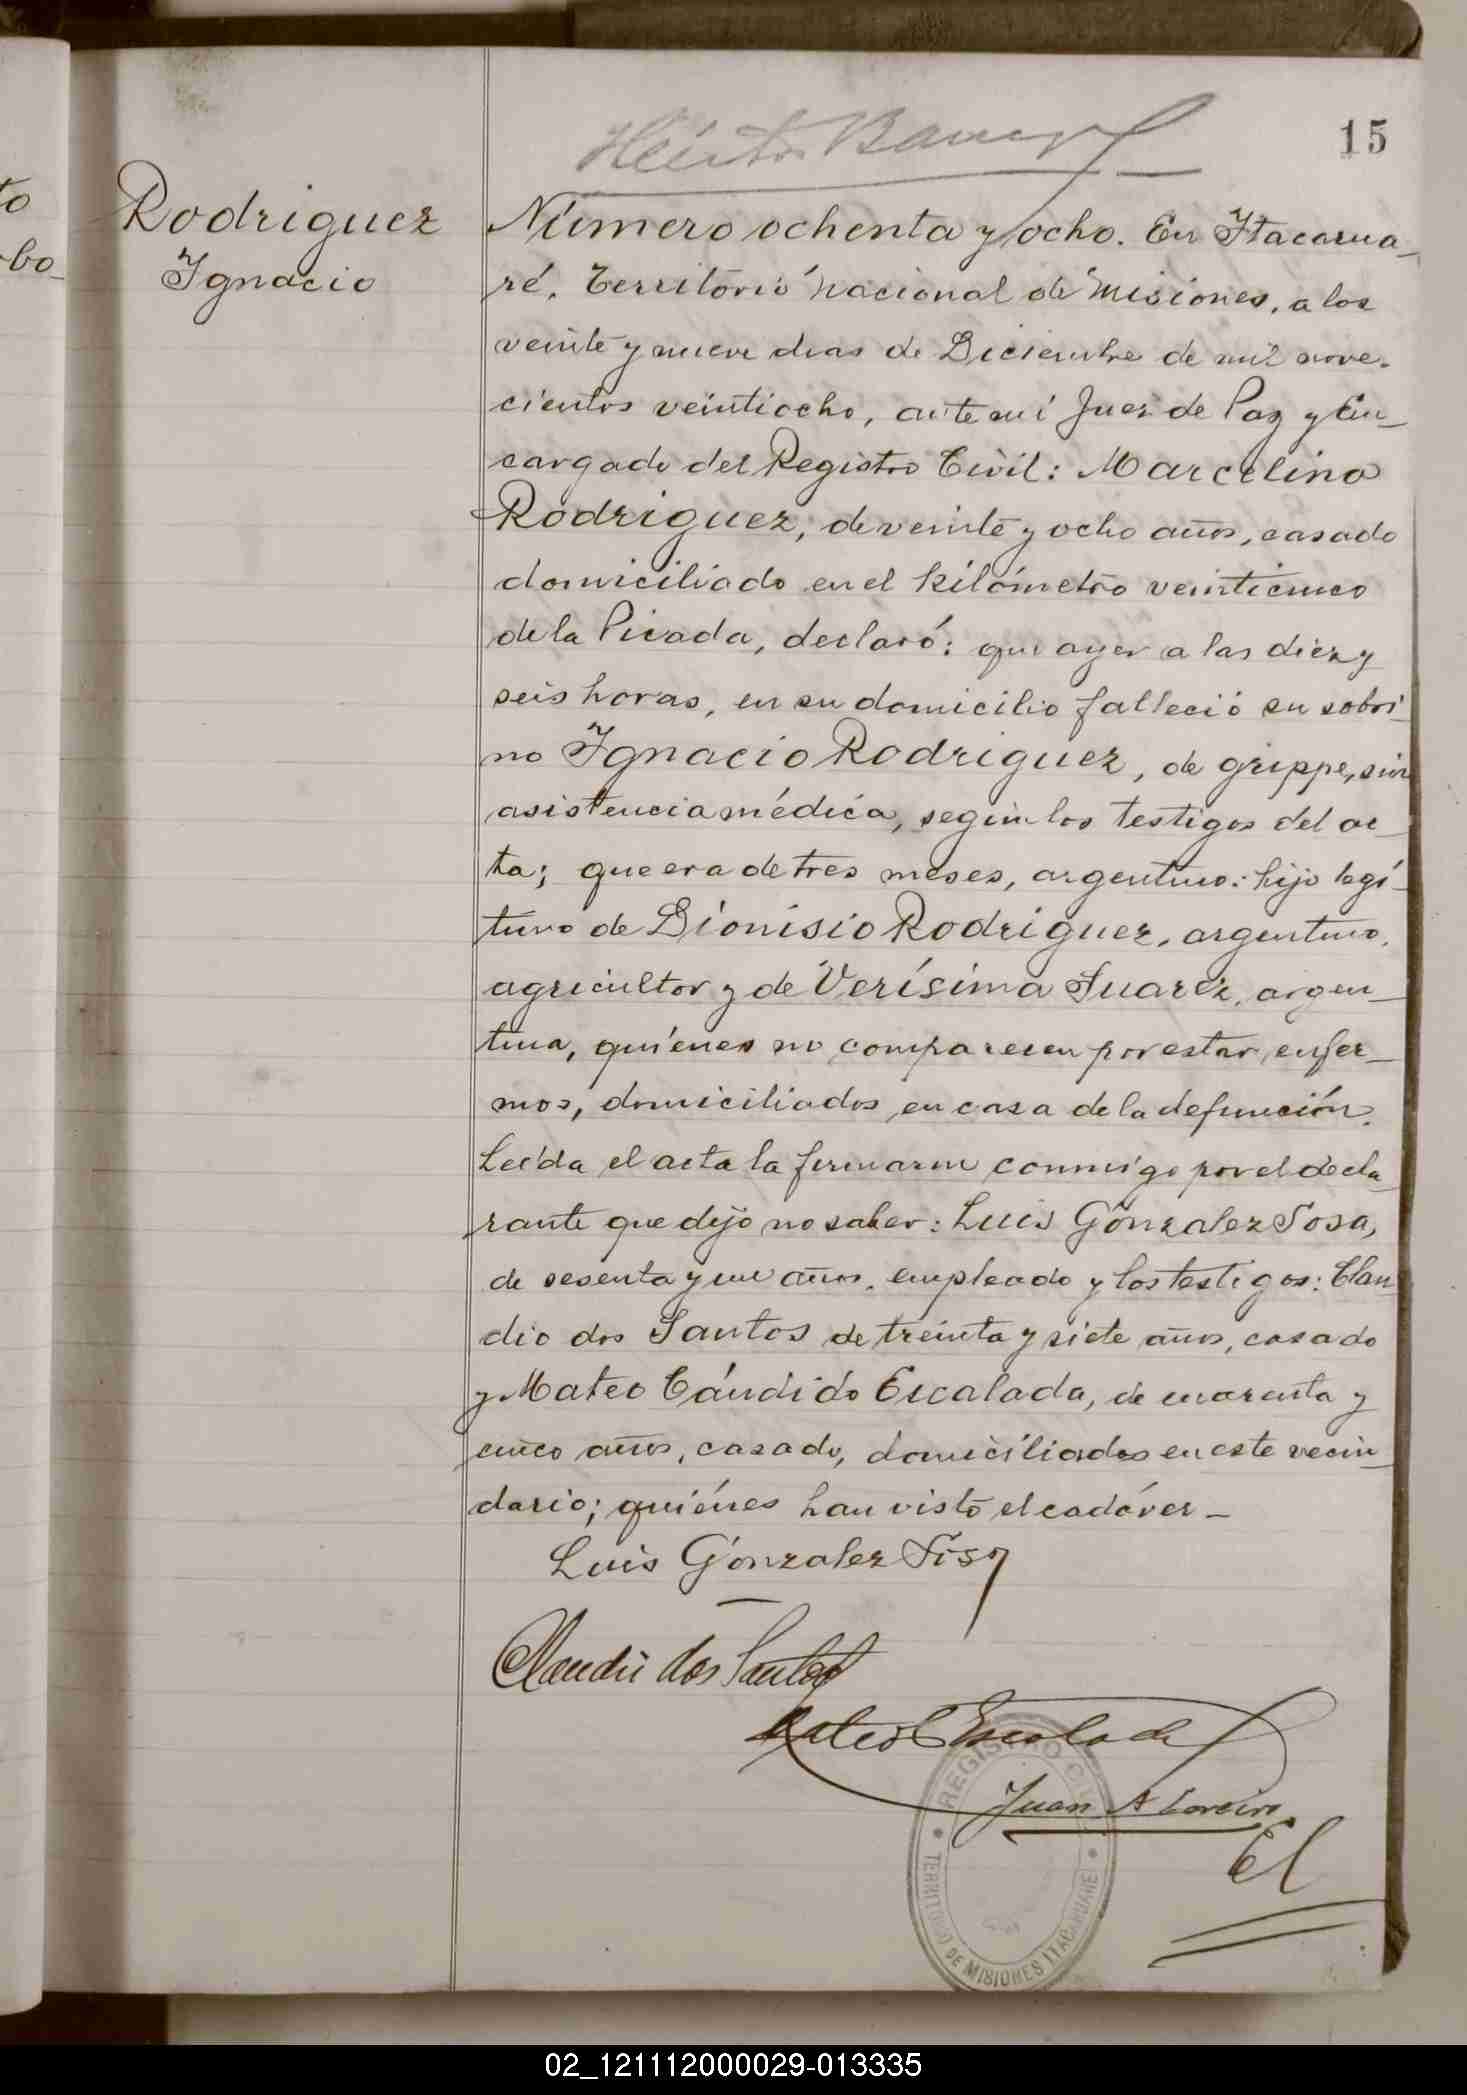 15
Rodriguez
Ignacio
Número ochenta y ocho. En Itacarua-
ré, Territorio nacional de Misiones, a los
veinte y nueve dias de Diciembre de mil nove-
cientos veintiocho, ante mi Juez de Paz y En-
cargado del Registro Civil: Marcelino
Rodriguez, de veinte y ocho años, casado
domiciliado en el kilómetro veinticinco
de la Picada, declaró: que ayer a las diez y
seis horas, en su domicilio falleció su sobri-
no Ignacio Rodriguez, de grippe, sin
asistencia médica, según los testigos del ac-
ta; que era de tres meses, argentino: hijo legí-
timo de Dionisio Rodriguez, argentino,
agricultor y de Verísima Juarez, argen-
tina, quiénes no comparecen por estar enfer-
mos, domiciliados en casa de la defunción.
Leída el acta la firmaron conmigo por el decla
rante que dijo no saber: Luis Gonzalez Sosa,
de sesenta y un años, empleado y los testigos: Clau
dio dos Santos de treinta y siete años, casado
y Mateo Cándido Escalada, de cuarenta y
cinco años, casado, domiciliados en este vecin
dario; quiénes han visto el cadáver -
Luis Gonzalez Sosa
Claudio dos Santos
Mateo C Escalada
Juan A Loreiro
REGISTRO CIVIL
TERRITORIO DE MISIONES ITACARUARE
02_121112000029-013335